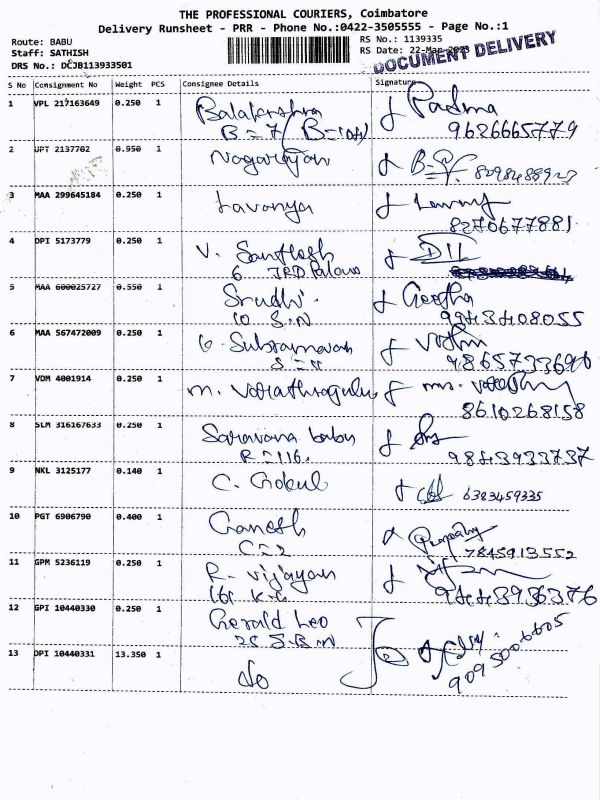 THE PROFESSIONAL COURIERS, Coimbatore
Delivery Runsheet - PRR - Phone No.:0422-3505555 - Page No.:1
Route: BABU
Staff: SATHISH
DRS No.: DCJB113933501
RS No.: 1139335
RS Date: 22-Mar-2023
DOCUMENT DELIVERY
S No Consignment No Weight PCS Consignee Details Signature
1 VPL 217163649 0.250 1 Balakrishna Padma
B=7/ 9626665779
2 UPT 2137702 0.950 1 Nagarajan
3 MAA 299645184 0.250 1 Lavanya
8270677881
4 DPI 5173779 0.250 1 V. Santhosh
6
5 MAA 600025727 0.550 1 Srudhi. Geetha
10 S.N 9943408055
6 MAA 567472009 0.250 1
7 VDM 4001914 0.250 1 m.
8610268158
8 SLM 316167633 0.250 1 Saravana babu
R=116. 9843933737
9 NKL 3125177 0.140 1 C. Gokul 6383459335
10 PGT 6906790 0.400 1 Ganesh
C=2 7845913552
11 GPM 5236119 0.250 1 R. Vijayan
161 K.G 9443936376
12 GPI 10440330 0.250 1 Gerald Leo
25 S.B.N
13 DPI 10440331 13.350 1 do
9095006605